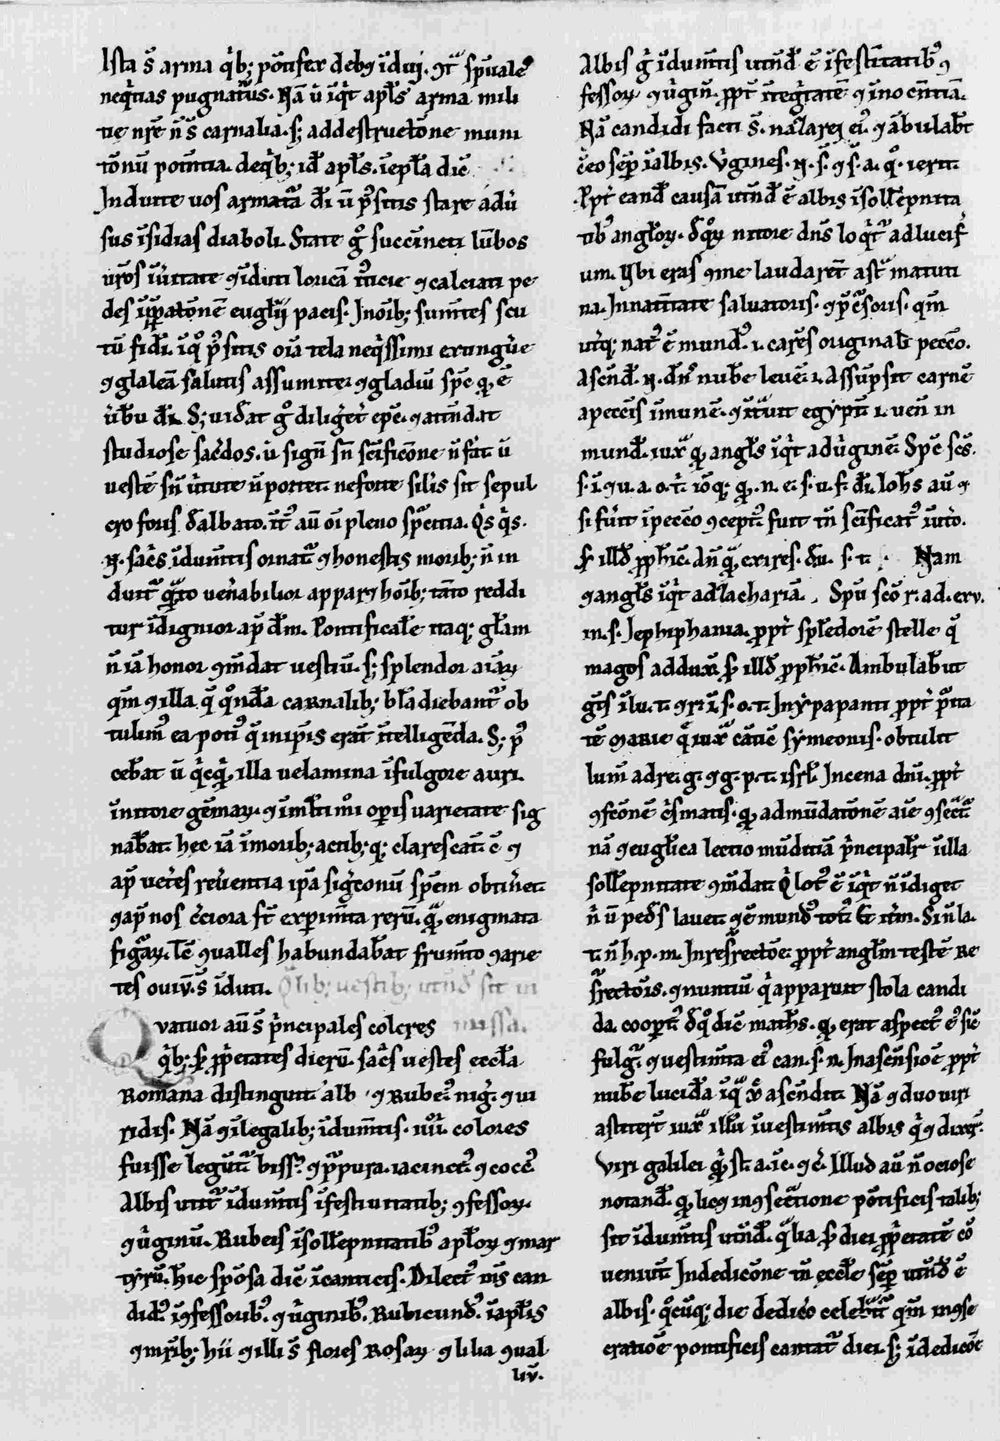 Ista s̄ arma qͥb; pōtifex deb&ꝰ īdui. ↄt̄ sp̄ualeˢ
neqͥtias pugnatur̄ꝰ. Nā ū īqͥt apl̄s arma mili
tie nr̄e n̄ s̄ carnalia. s; ad destructōne muni
tōnū potn̄tia. de qͥb; id̄ apl̄s. ī ep̄la dic̄
Induite uos armatā d̄i ū p̄sitis stare adū
sus īsidias diaboli. State gͦ succincti lūbos
ur̄os iūitate ↄ īduti loricā iu̅sticie ↄ calciati pe
des ī p̄patōnē euglīj pacis. In oīb; sumētes scu
tū fidei. ī qͦ p̄sitis oīa tela neqͥssimi exting̅ue
ↄ galeā salutis assumite. ↄ gladiū sp̄c qͥ ē
ūbū d̄i. S; uid̄at gͦ diligēt̄ ep̄c. ↄ attn̄dat
studiose sac̄dos. ū sign̄ sn̄ sc̄ificōne n̄ fat. ū
uestē sn̄ ūtute n̄ portet. ne forte silīs sit sepul
cro foris d̄albato. īt̄ au̅ oī pleno sp̄citia. Qͥs qͥs.
n̄. sac̄s īdumn̄tis ornat̄ ↄ honestis morib; n̄ in
duit̄ qͣto uen̄abilior apparꝫ hoīb; tāto reddi
tur īdignior ap̄ d̄m. Pontificale itaq; gl̄am
n̄ iā honor ↄm̄dat uestiū. s; splendor aīaꝝ
qm̄ ↄ illa q̄ qͦnda carnalib; bl̄adiebant̄ ob
tutibꝰ ea potiꝰ q̄ in ip̄is erāt ītelligēda. S; p̄
cebat ū qͥcqͥd illa uelamina ī fulgore auri.
ī nitore gēmaꝝ. ↄ ī mltīmoͩi op̄is uarietate sig
nab̄at. hec iā ī morib; actib;q; clarescāt. ē ↄ
ap̄ uet̄es reu̅entia ip̄a sig̅ceonū sp̄em obtin̄et.
ↄ ap̄ nos c̄ciora st̄ exp̄im̄ta rerū. qͣ enigmata
figͣꝝ. Tē ↄualles habundab̄at frumn̄to ↄ arie
tes ouiū. s̄ iduti. Qͥlib; uestib; utn̄d̄ sit in
missa.
Quatuor aū s̄ p̄ncipales colores
qͥb; s̄ pp̄etates dierū. sac̄s uestes eccl̄a
Romana distinguit. alb ꝰ ↄ Rubeꝰ nigͬ. ↄ ui
ridis. Nā ↄ ī legalib; īdumn̄tis. iiii. colores
fuisse legūt̄ bissꝰ ↄ p̄pura. iacinctꝰ ↄ coccꝰ
Albis utit̄ īdumn̄tis ī festiuitatib; ↄfessoꝝ.
ↄ ūginū. Rubeis ī sollēpnitatibꝰ apl̄oꝝ ↄ mar
tyrū. hīc spōsa dic̄ ī canticis. Dilectꝰ mꝰs can
didꝰ ī ↄfessoribꝰ. ↄ ūginibꝰ. Rubicundꝰ. ī apl̄is
ↄ m̄rib; hii ↄ illi s̄ flores Rosaꝝ ↄ lilia ↄual
liū.
Albis gͦ īdumn̄tis utn̄d̄ ē ī festīitatibꝰ ↄ
fessoꝝ ↄ ūgin̄. ppt̄ īteg̅tatē ↄ īnocn̄tiā.
Nā candidi facti s̄. naȥarei eiꝰ. ↄ ābulab̄t
c̄ eo sēp̄ ī albis. Ūgines. n̄. s̄. ↄ s̄. a. qͦ. ierit.
Ppt̄ eand̄ causā utn̄d̄ ē albis ī sollēpnita
tibꝰ angl̄oꝝ. d̄ qͦꝝ nitore dn̄s loqͥt̄ ad lucif̄
um. Vbi eras ↄ me laudarēt astͣ matuti
na. In natiūitate saluatoris. ↄ p̄c̄soris. qm̄
utq; natꝰ ē mundꝰ. i. carēs originali pecc̄o.
Ascn̄d̄. n̄. dn̄s nub̄e leuē. i. assūpsit carnē
a pecc̄is īmunē. ↄ ītuit egyptū. i. uen̄ in
mund̄. iux̄ qͩ angl̄s īqͥt ad ūginē. Sp̄c sc̄s.
s. ī. qu. a. o. t. iōq;. qͥ. n. e. s. u. f. d̄i. Ioh̄s aū ↄ
si fuit ī pecc̄o ↄceptꝰ fuit tn̄ sc̄ificatꝰ ī ut̄o.
s̄ illd̄ pph̄ic̄. an̄ qͣ exires. d̄u. s. t. Nam
ↄ angl̄s īqͥt ad Zachariā. Spū sc̄o r. ad. exv.
m. s. In ephiphania. ppt̄ splēdorē stelle q̄
magos addux̄. s̄ illd̄ pph̄ic̄. Ambulab̄ut
gn̄s ī lu. t. ↄ r̄i ī s. o. t. In ypapanti ppt̄ p̄ita
tē Marie q̄ iux̄ cātic̄ symeonis. obtulit
lum̄ ad re. g. ↄ g. p. t. isrl̄. In cena dn̄i. ppt̄
ↄfcōnē c̄smatis. qͩ ad mūdatōnē aīe ↄsec̄t̄
nā ↄ euglica lectio mūditiā p̄ncipalit̄ ī illa
sollēpnitate ↄm̄dat. Q̄ lotꝰ ē īqͥt n̄ īdiget
n̄ ū ped̄s lauet. ↄ ē mundꝰ totꝰ. Et it̄m. Si n̄ la.
t. n̄ h. p. m. In resr̄rectōe. ppt̄ angl̄m testē Re
surrectōis. ↄ nuntiū qͥ apparuit stola candi
da coopt̄ꝰ d̄ qͦ dic̄ math̄s. qͩ erat aspectꝰ eꝰ sic̄
fulgͬ. ↄ uestimn̄ta eiꝰ can. s. n. In ascn̄siōe ppt̄
nub̄e lucida ī qͣ x̄ ascēndit. Nā ↄ duo uiri
astiter̄t iux̄ illū ī uestimn̄tis albis qͥ ↄ dixer̄.
Viri galilei qͥ st̄. a. ī c. ↄ c̄. Illud aū n̄ ociose
notand̄. qͩ lic& in ↄsecͣtione pōtificis talib;
sit īdumn̄tis utn̄d̄. qͣlia s̄ diei pp̄etatē cō
ueniūt. In dedicōne tn̄ eccl̄e sēp̄ utn̄d̄ ē
albis. qͦcūq; die dedico celebret̄ qm̄ in ↄse
cratiōe pontificis cantat̄ diei. s; ī dedicōe